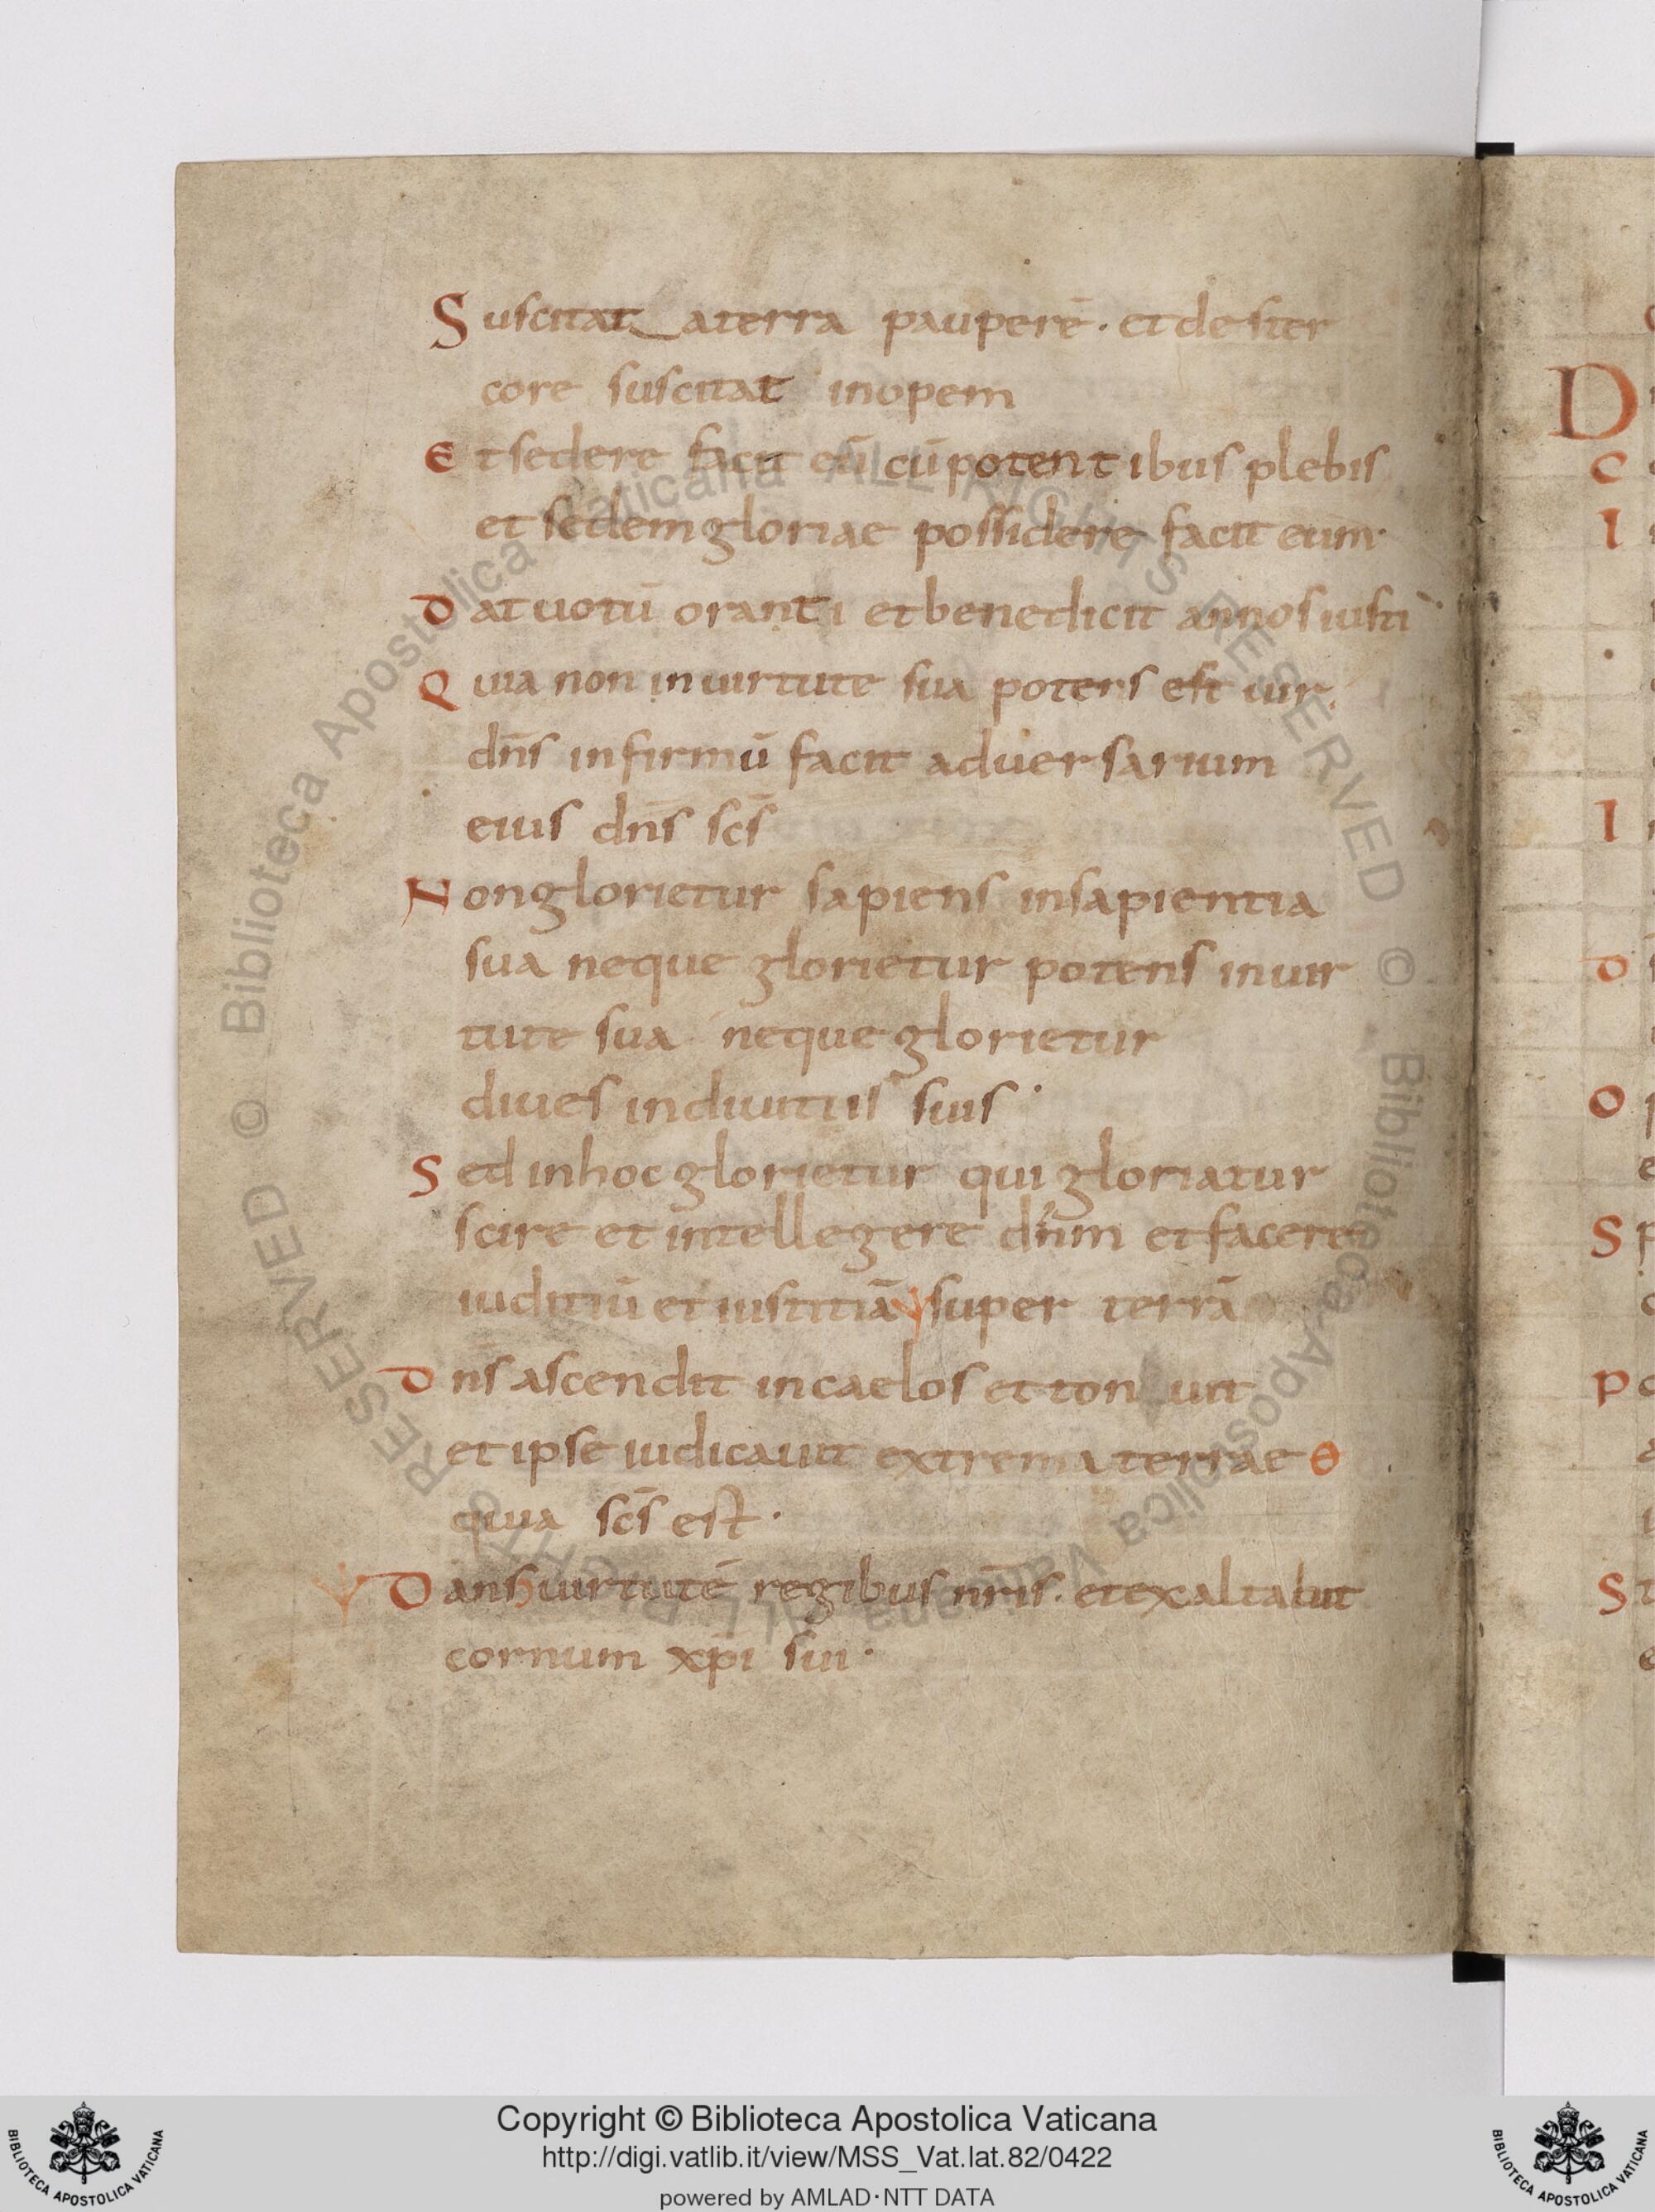 Suscitat a terra pauperē· et de ster
core suscitat inopem
Et sedere facit eū cū potentibus plebis
et sedem gloriae possidere facit eum·
Dat uotū oranti et benedicit annos iusti·
Quia non in uirtute sua potens est uir.
dn̄s infirmū facit aduersarium
eius dn̄s scs̄
Non glorietur sapiens in sapientia
sua neque glorietur potens in uir
tute sua neque glorietur
diues in diuitiis suis·
Sed in hoc glorietur qui gloriatur
scire et intellegere dn̄m et facere
iuditiū et iustitiā super terrā
Dn̄s ascendit in caelos et ton uit
et ipse iudicauit extrema terrae
quia scs̄ est·
Dans uirtutē regibus nr̄is· et exaltabit
cornum xp̄i sui·
Copyright © Biblioteca Apostolica Vaticana
http://digi.vatlib.it/view/MSS_Vat.lat.82/0422
powered by AMLAD·NTT DATA
BIBLIOTECA APOSTOLICA VATICANA
BIBLIOTECA APOSTOLICA VATICANA